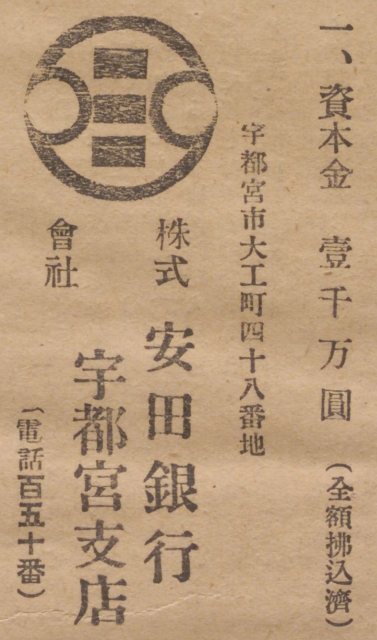 一、資本金 壹千万圓 (全額拂込濟)
宇都宮市大工町四十八番地
株式會社 安田銀行
宇都宮支店
(電話百五十番)